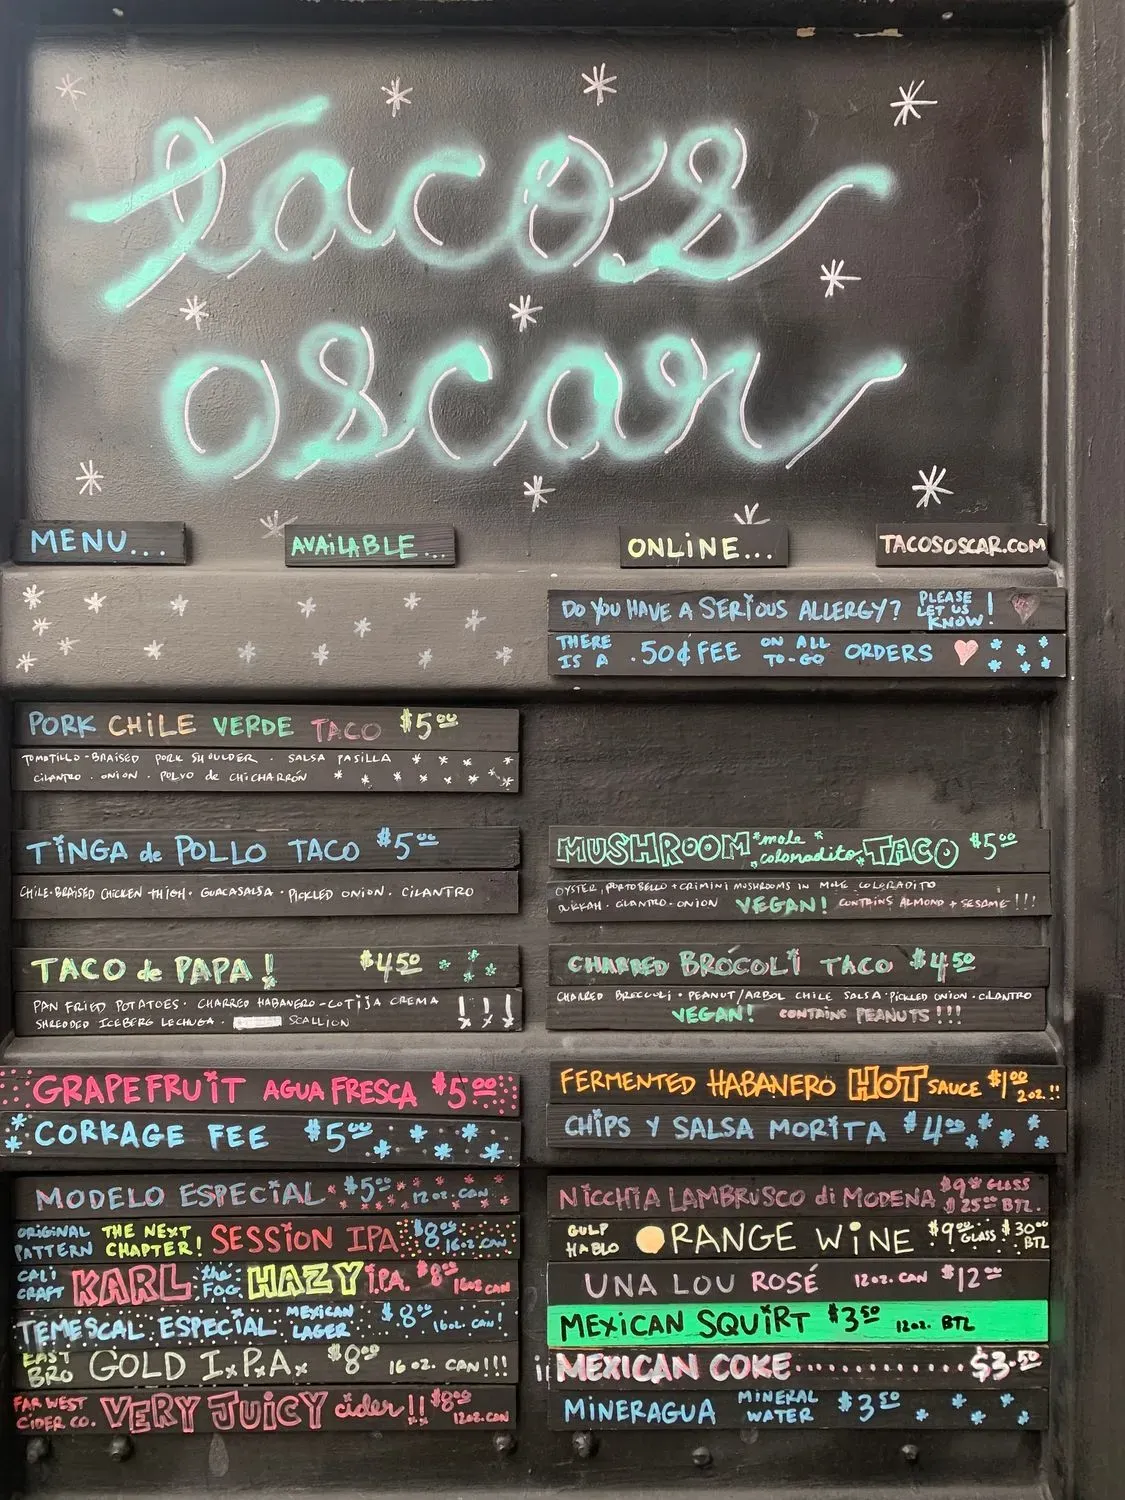 tacos
oscar
MENU...
AVAILABLE...
ONLINE...
TACOSOSCAR.COM
DO YOU HAVE A SERIOUS ALLERGY? PLEASE LET US KNOW!
THERE IS A .50¢ FEE ON ALL TO-GO ORDERS
PORK CHILE VERDE TACO $5.00
TOMATILLO-BRAISED PORK SHOULDER . SALSA PASILLA
CILANTRO . ONION . POLVO de CHICHARRÓN
TINGA de POLLO TACO $5.00
CHILE-BRAISED CHICKEN THIGH · GUACASALSA · PICKLED ONION · CILANTRO
MUSHROOM *mole coloradito* TACO $5.00
OYSTER, PORTOBELLO + CRIMINI MUSHROOMS IN MOLE COLORADITO
DUKKAH · CILANTRO · ONION VEGAN! CONTAINS ALMOND + SESAME!!!
TACO de PAPA! $4.50
PAN FRIED POTATOES · CHARRED HABANERO-COTIJA CREMA
SHREDDED ICEBERG LECHUGA · SCALLION !!!
CHARRED BRÓCOLI TACO $4.50
CHARRED BROCCOLI · PEANUT/ARBOL CHILE SALSA · PICKLED ONION · CILANTRO
VEGAN! CONTAINS PEANUTS!!!
GRAPEFRUIT AGUA FRESCA $5.00
CORKAGE FEE $5.00
FERMENTED HABANERO HOT SAUCE $1.00 2oz.!!
CHIPS Y SALSA MORITA $4.00
MODELO ESPECIAL $5.00 12oz. CAN
ORIGINAL PATTERN THE NEXT CHAPTER! SESSION IPA $8.00 16oz. CAN
CALI CRAFT KARL the FOG HAZY I.P.A. $8.00 16oz CAN
TEMESCAL ESPECIAL MEXICAN LAGER $8.00 16oz. CAN!
EAST BRO GOLD I.P.A. $8.00 16oz. CAN!!!
FAR WEST CIDER CO. VERY JUICY cider!! $8.00 12oz. CAN
NICCHIA LAMBRUSCO di MODENA $9.00 GLASS $25.00 BTL.
GULP HABLO ORANGE WINE $9.00 GLASS $30.00 BTL
UNA LOU ROSÉ 12oz. CAN $12.00
MEXICAN SQUIRT $3.50 12oz. BTL
MEXICAN COKE............$3.50
MINERAGUA MINERAL WATER $3.50